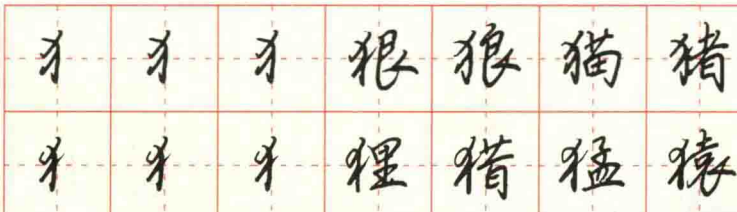 犭犭犭狠狼猫猪
犭犭犭狸猎猛猿